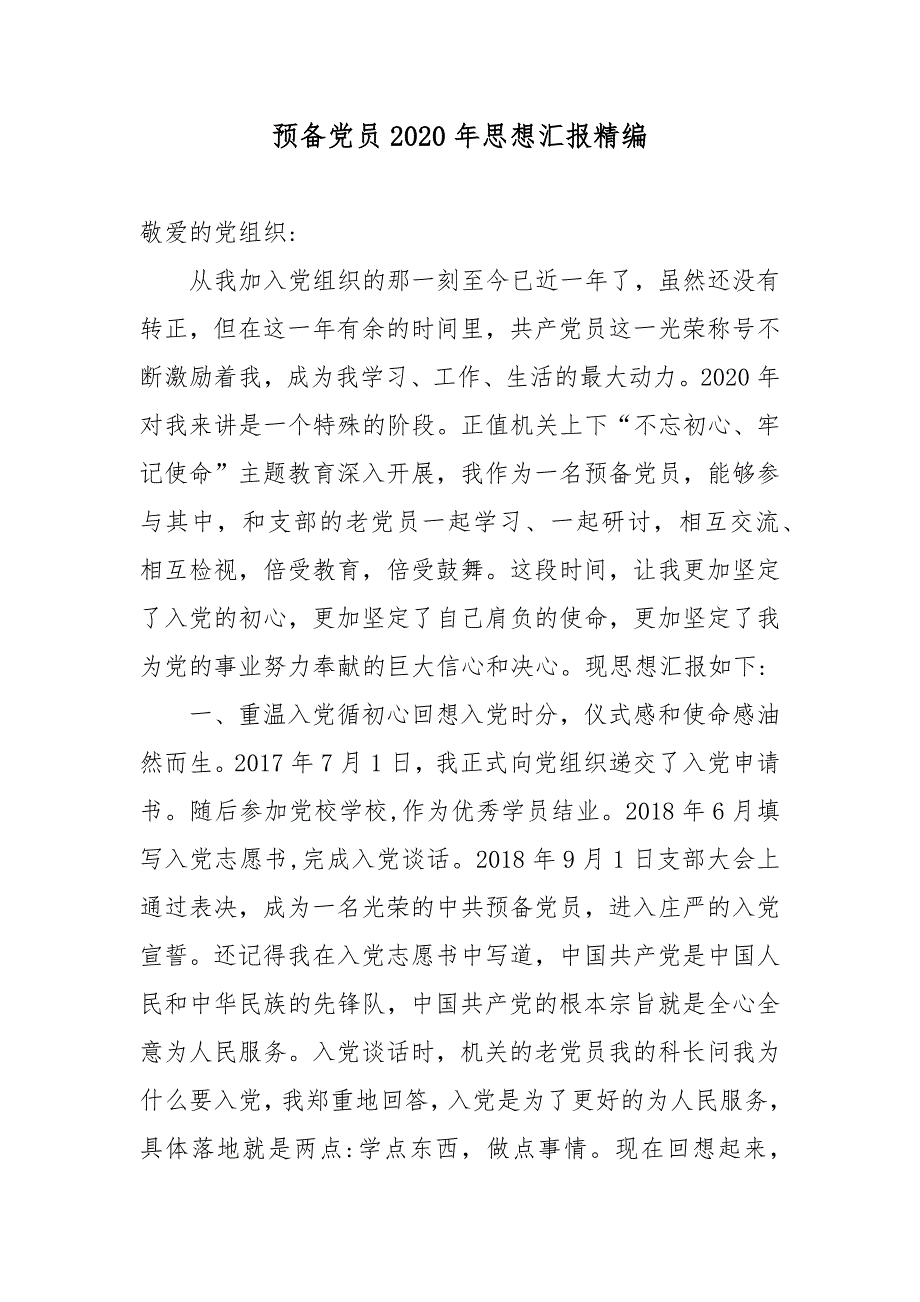 预备党员2020年思想汇报精编
敬爱的党组织:
从我加入党组织的那一刻至今已近一年了，虽然还没有
转正，但在这一年有余的时间里，共产党员这一光荣称号不
断激励着我，成为我学习、工作、生活的最大动力。2020年
对我来讲是一个特殊的阶段。正值机关上下“不忘初心、牢
记使命”主题教育深入开展，我作为一名预备党员，能够参
与其中，和支部的老党员一起学习、一起研讨，相互交流、
相互检视，倍受教育，倍受鼓舞。这段时间，让我更加坚定
了入党的初心，更加坚定了自己肩负的使命，更加坚定了我
为党的事业努力奉献的巨大信心和决心。现思想汇报如下:
一、重温入党循初心回想入党时分，仪式感和使命感油
然而生。2017年7月1日，我正式向党组织递交了入党申请
书。随后参加党校学校,作为优秀学员结业。2018年6月填
写入党志愿书,完成入党谈话。2018年9月1日支部大会上
通过表决，成为一名光荣的中共预备党员，进入庄严的入党
宣誓。还记得我在入党志愿书中写道，中国共产党是中国人
民和中华民族的先锋队，中国共产党的根本宗旨就是全心全
意为人民服务。入党谈话时，机关的老党员我的科长问我为
什么要入党，我郑重地回答，入党是为了更好的为人民服务，
具体落地就是两点:学点东西，做点事情。现在回想起来，